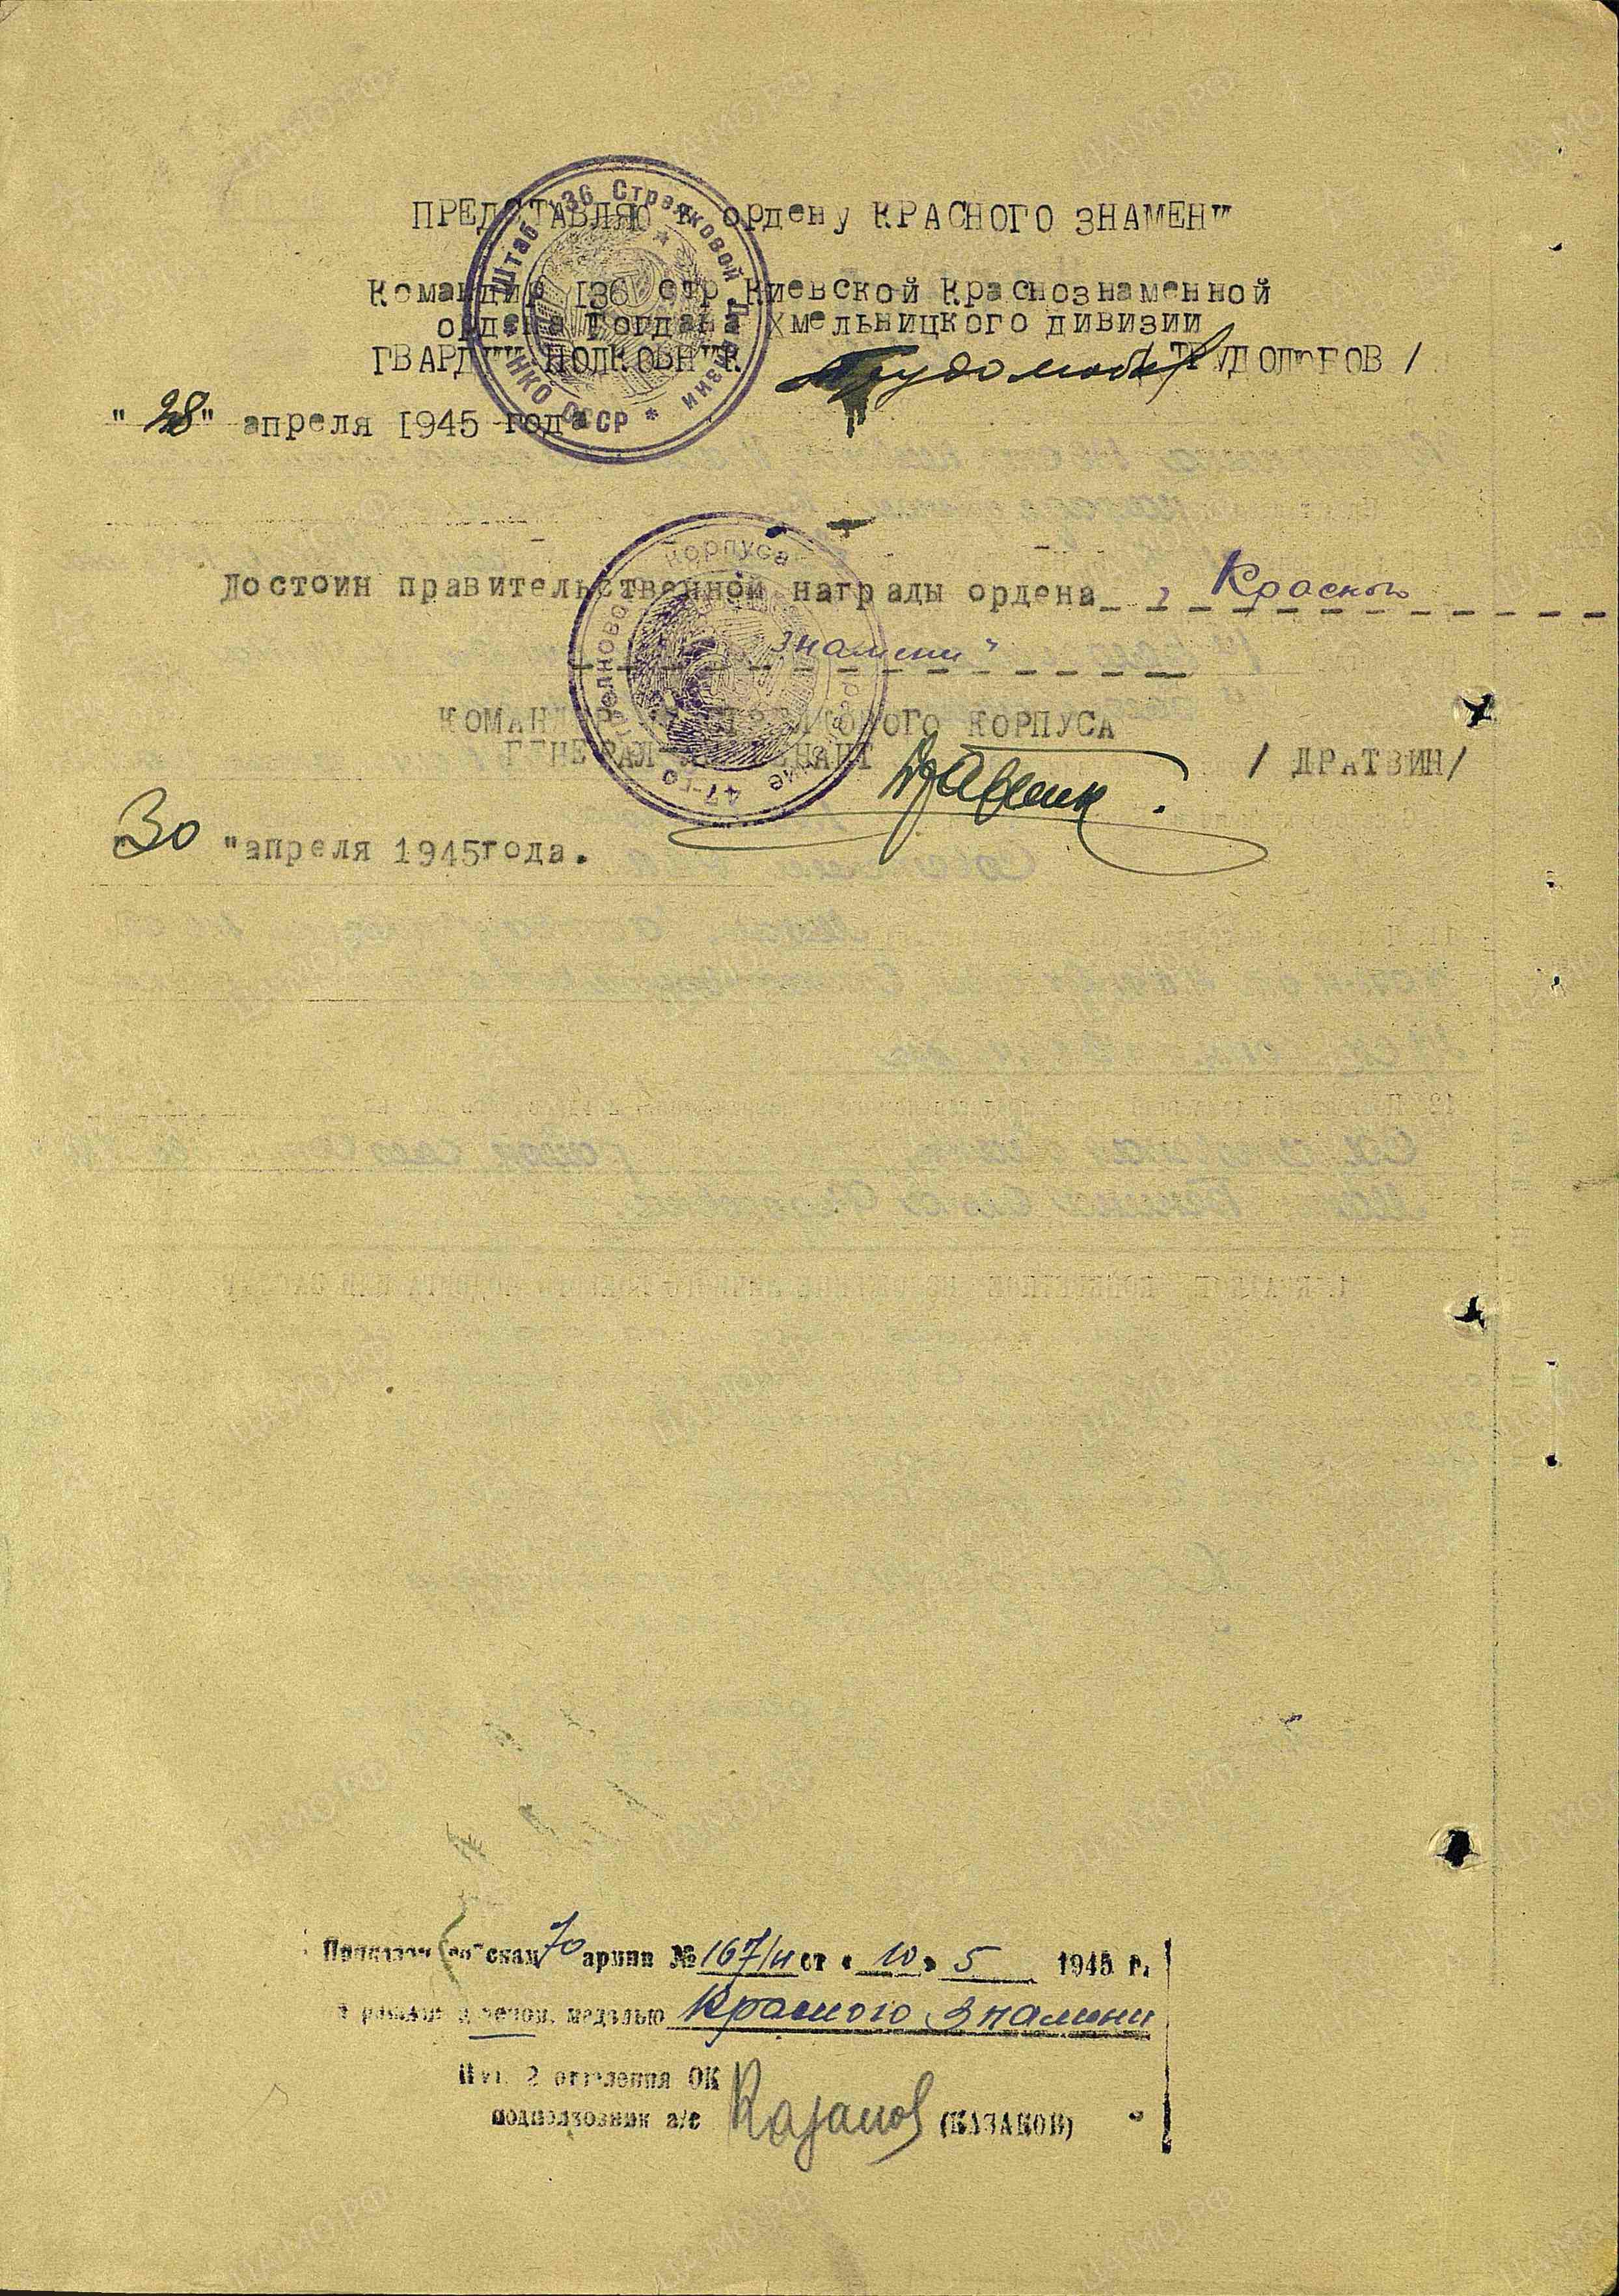 ПРЕДСТАВЛЯЮ к ордену КРАСНОГО ЗНАМЕНИ
Командир I36 стр. Киевской Краснознаменной
ордена Богдана Хмельницкого дивизии
ГВАРДИИ ПОЛКОВНИК Трудолюбов / ТРУДОЛЮБОВ /
"28" апреля I945 года
Штаб 136 Стрелковой Дивизии * НКО СССР *
Достоин правительственной награды ордена „ Красного
Знамени"
КОМАНДИР СТРЕЛКОВОГО КОРПУСА
ГЕНЕРАЛ-ЛЕЙТЕНАНТ Дратвин / ДРАТВИН/
"30 "апреля 1945года.
Управление 47-го Стрелкового корпуса
Приказом войскам 70 армии № 167/н от « 10 » 5 1945 г.
награжден орденом, медалью Красного Знамени
Нач. 2 отделения ОК
подполковник а/с Казаков (КАЗАКОВ)
ЦАМО.РФ